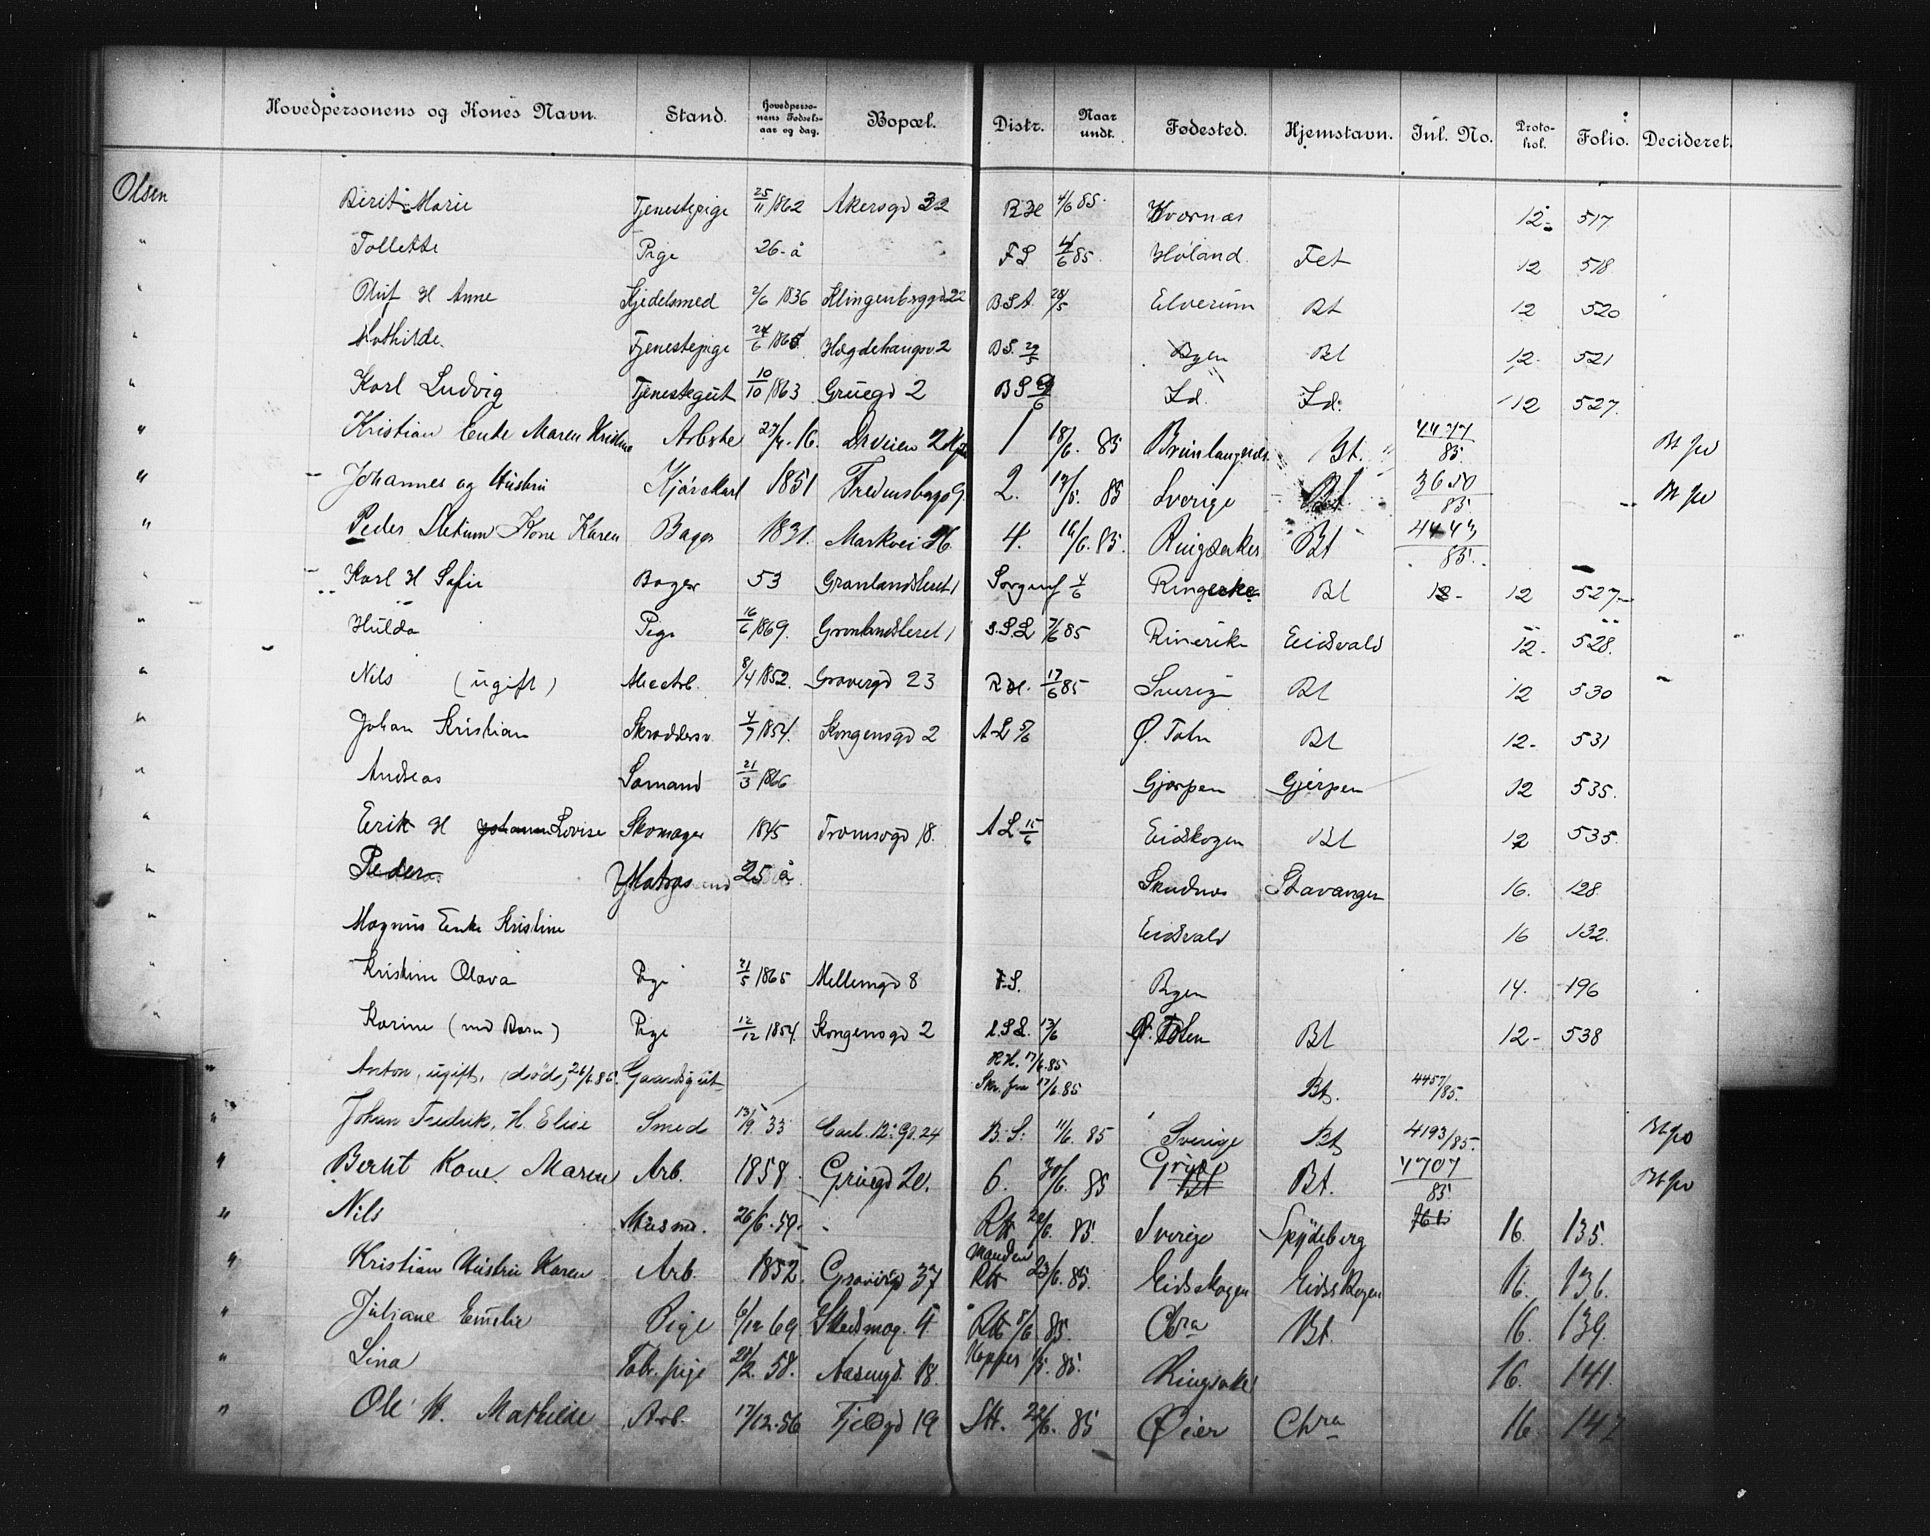 Hovedpersonens og Kones Navn. Stand. Hovedpersonens Fødselsaar og dag. Bopæl. Distr. Naar undt. Fødested. Hjemstavn. Jul. No. Protokol. Folio. Decideret.
Olsen Berit Marie Tjenestepige 25/11 1862 Akersgd 32 R H 4/6 85. Kværnæs 12 517
" Tollette Pige 26 å F S 4/6 85. Høland Fet 12 518
" Oluf H Anne Kjedelsmed 2/6 1836 Klingenberggd 22 B S A 28/5 Elverum Bt 12 520
" Mathilde Tjenestepige 24/6 Hægdehaugsv. 2 B S. 29/5 Bt 12 521
" Karl Ludvig Tjenestegut 10/10 1863 Gruegd 2 B S Id. Id. 12 527.
" Kristian Enke Maren Kristine Arbske 27/4. 16. Drveien 1 18/6. 85 Brunlangnæs Bt. 4477/85. Bt po
" Johannes og Hustru Kjørekarl 1851 2. 17/5. 85 Sverige Bt 3650/85. Bt po
" Peder Kone Karen Bager 1831. Markvei 26. 4. 16/6. 85. Ringsaker Bt 4443/85.
" Karl H Sofie Bager 53 Grønlandsleret 1 4/6 Bt 12 527
" Hulda Pige 16/6 1869. Grønlandsleret 1 7/6 85 Rinerike Eidsvold 12 528.
" Nils (ugift) 8/4 1852. Gravergd 23 R H. 17/6 85 Sverige Bt 12 530
" Johan Kristian Skræddersv. 4/7 1854. Kongensgd 2 A L 5/6 Ø. Toten Bt 12 531
" Andreas Sømand 21/3 1866 Gjerpen Gjerpen 12 535.
" Erik H Johanne Lovise Skomager 1845 Tromsøgd 18. A L 15/6 Eidskogen Bt 12 535
" Peder Matros 25 å Skudnæs Stavanger 16. 128.
" Magnus Enke Kristine Eidsvold 16 132.
" Kristine Olava Pige 21/5 1865 Møllergd 8 F.S. Byen 14. 196
" Karine (med Barn) Pige 12/12 1854. Kongensgd 2 13/6 Ø. Toten Bt 12 538
" Anton, ugift, (død 26/6.85. Gaardsgut R.H. 17/6.85 17/6.85 Bt. 4457/85.
" Johan Fredrik, H. Elise Smed 13/9. 33 Carl. 12. Gd. 24 B. S. 11/6. 85 Sverige Bt 4193/85. Bt po
" Berht Kone Maren Arb. 1858. Gruegd 20. 6. 30/6. 85 Bt. 4707/85 Bt po
" Nils 26/6. 59. RH 85. Sverige Spydeberg 16. 135.
" Kristian Hustru Karen Arb. 1852. Gravergd 37 Manden RH 23/6. 85. Eidskogen Eidskogen 16. 136.
" Juliane Emelie Pige 6/12 69. Skedsmog. 4. RH 8/6 85. Chra Bt. 16. 139.
" Lina Fabr. pige 58. Aasengd. 18. Kopper 85. Ringsaker 16. 141.
" Ole H. Mathilde Arb. 17/12.56 Fjeldgd 19 SH. 22/6. 85 Øier Chra 16 147